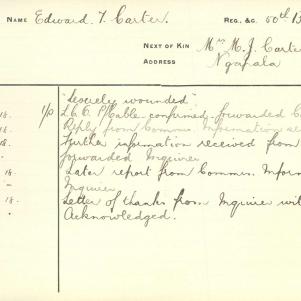 NAME Edward T. Carter. REG. &C. 50th B
NEXT OF KIN Mrs M. J. Carte
ADDRESS Ngapala
"Severely wounded"
18. 1/0 L.G.C. P/Cable confirmed, forwarded C
Reply from Commn. Information se
18. Further information received from
" forwarded Inquirer
18. Later report from Commn. Infor
" Inquirer
18. Letter of thanks from Inquirer wi
" Acknowledged.